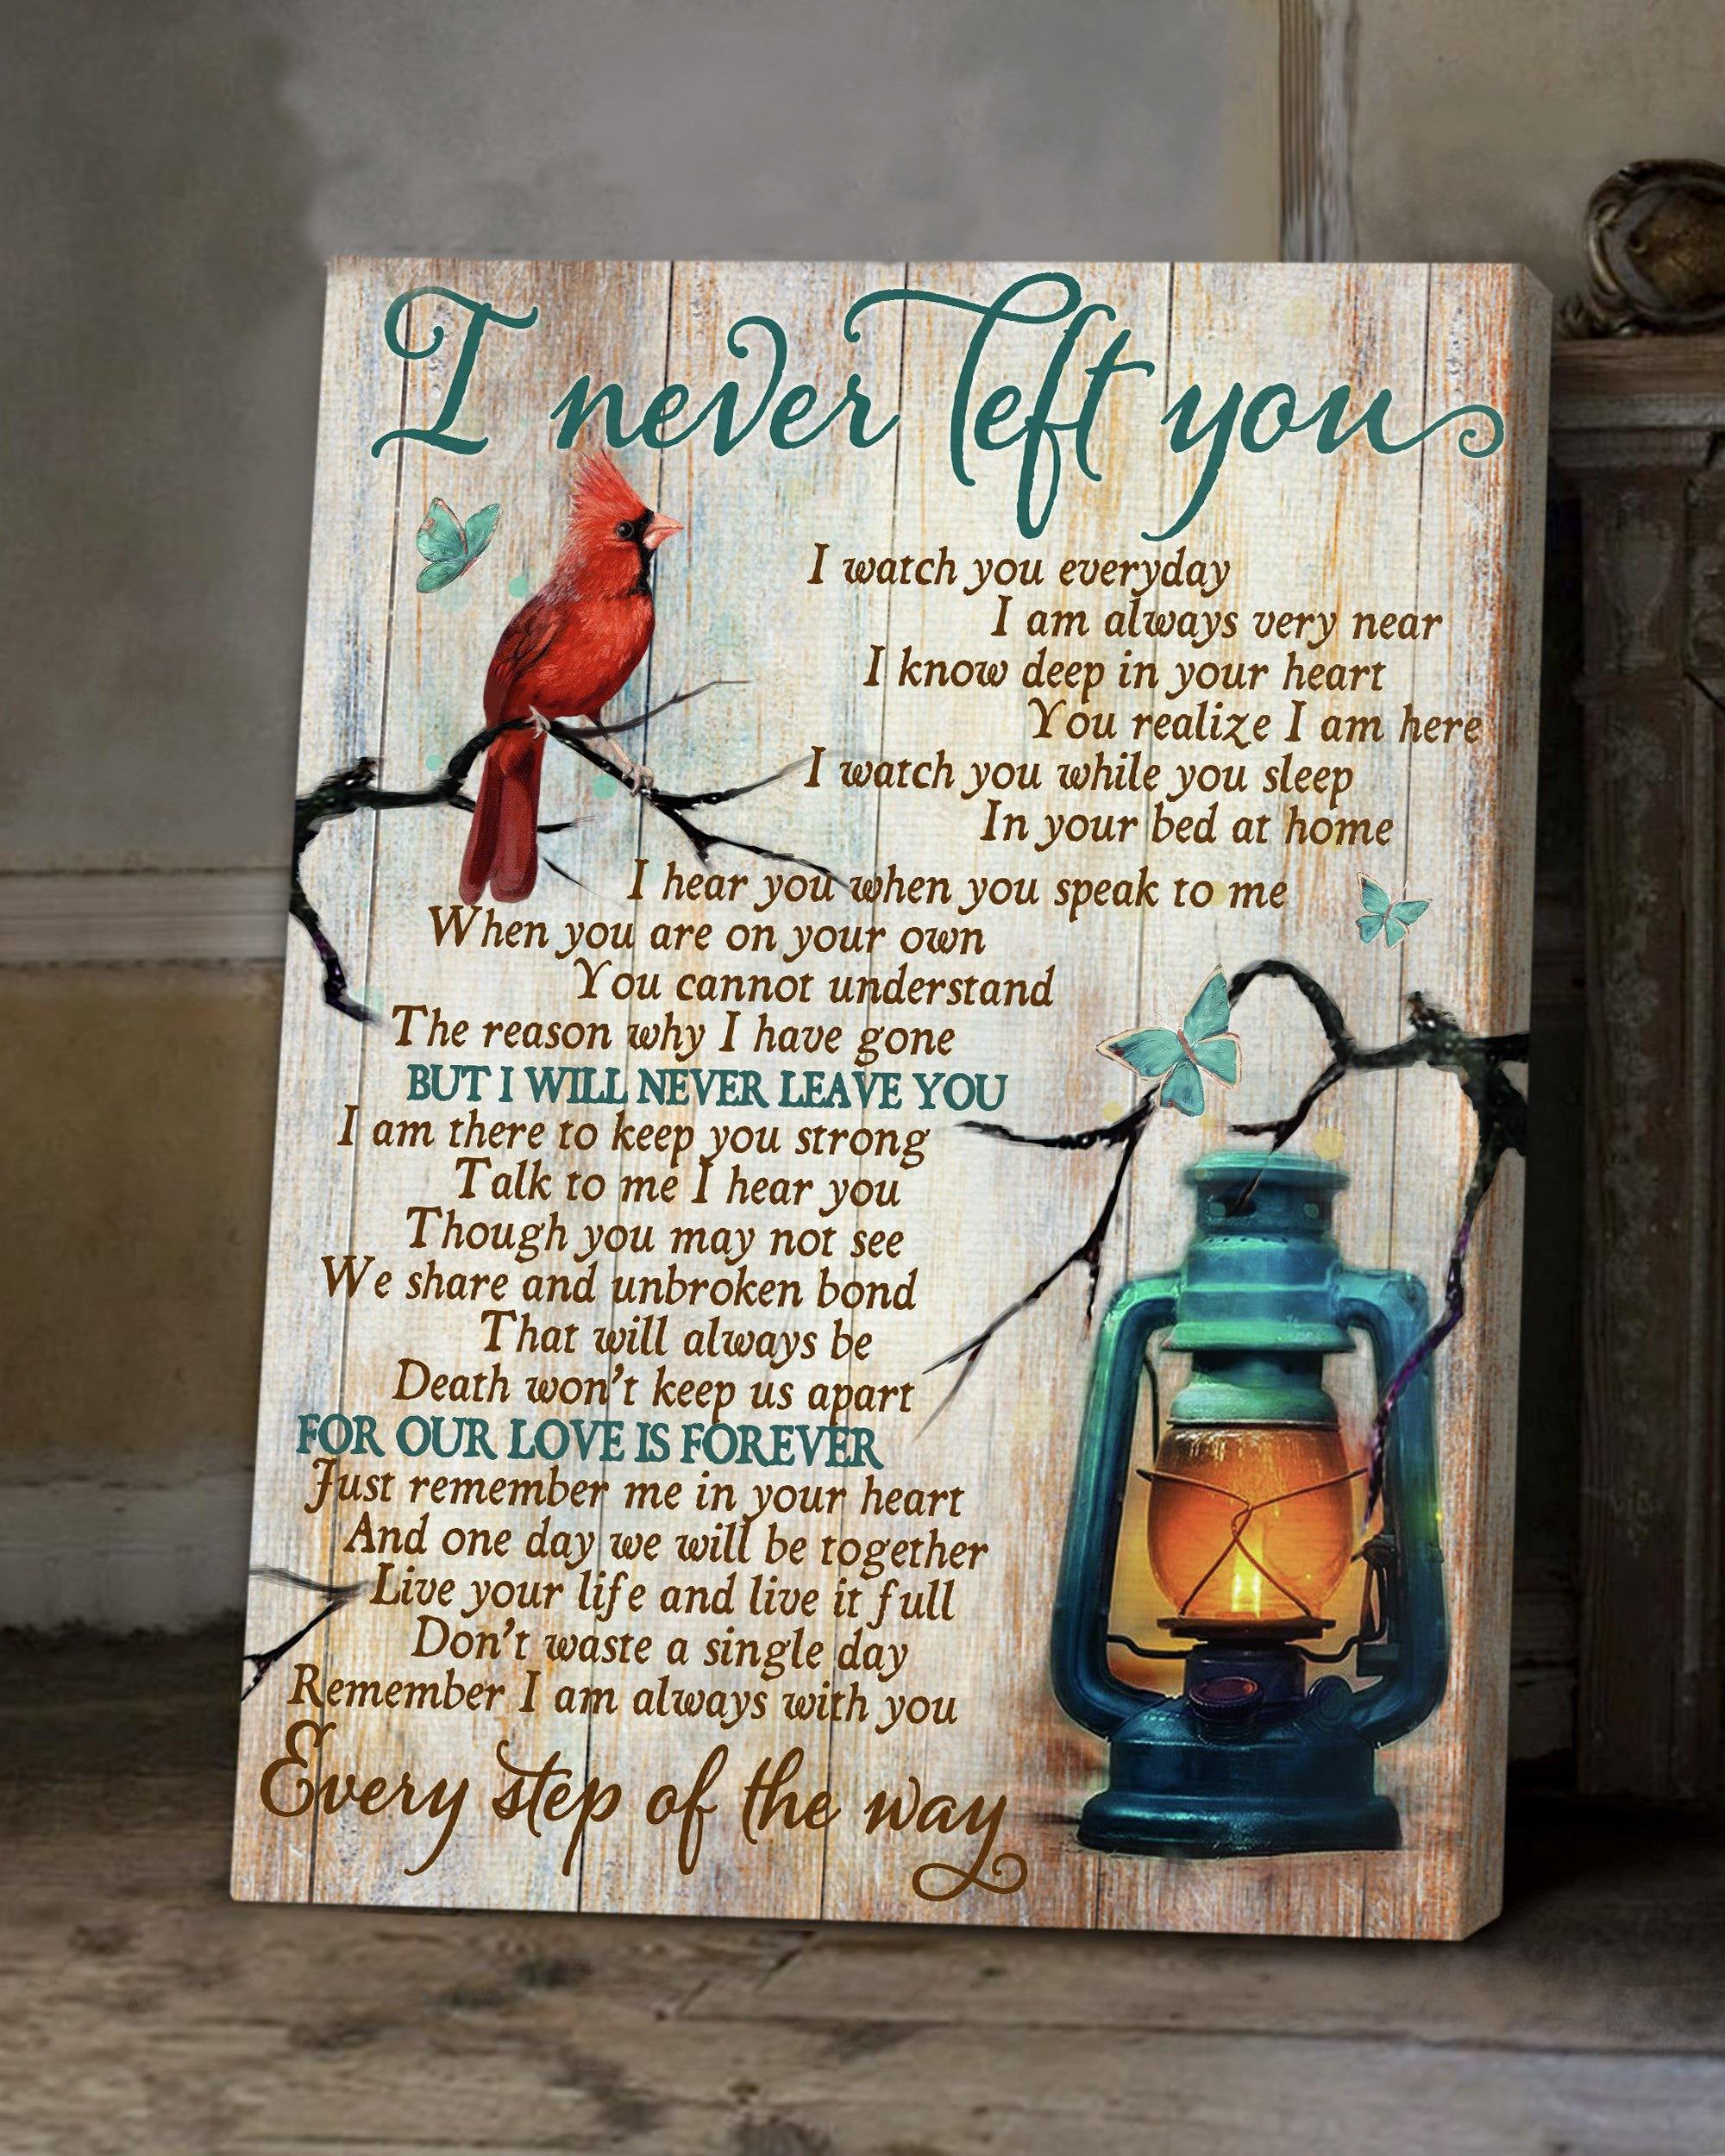 I never left you
I watch you everyday
I am always very near
I know deep in your heart
You realize I am here
I watch you while you sleep
In your bed at home
I hear you when you speak to me
When you are on your own
You cannot understand
The reason why I have gone
BUT I WILL NEVER LEAVE YOU
I am there to keep you strong
Talk to me I hear you
Though you may not see
We share and unbroken bond
That will always be
Death won't keep us apart
FOR OUR LOVE IS FOREVER
Just remember me in your heart
And one day we will be together
Live your life and live it full
Don't waste a single day
Remember I am always with you
Every step of the way